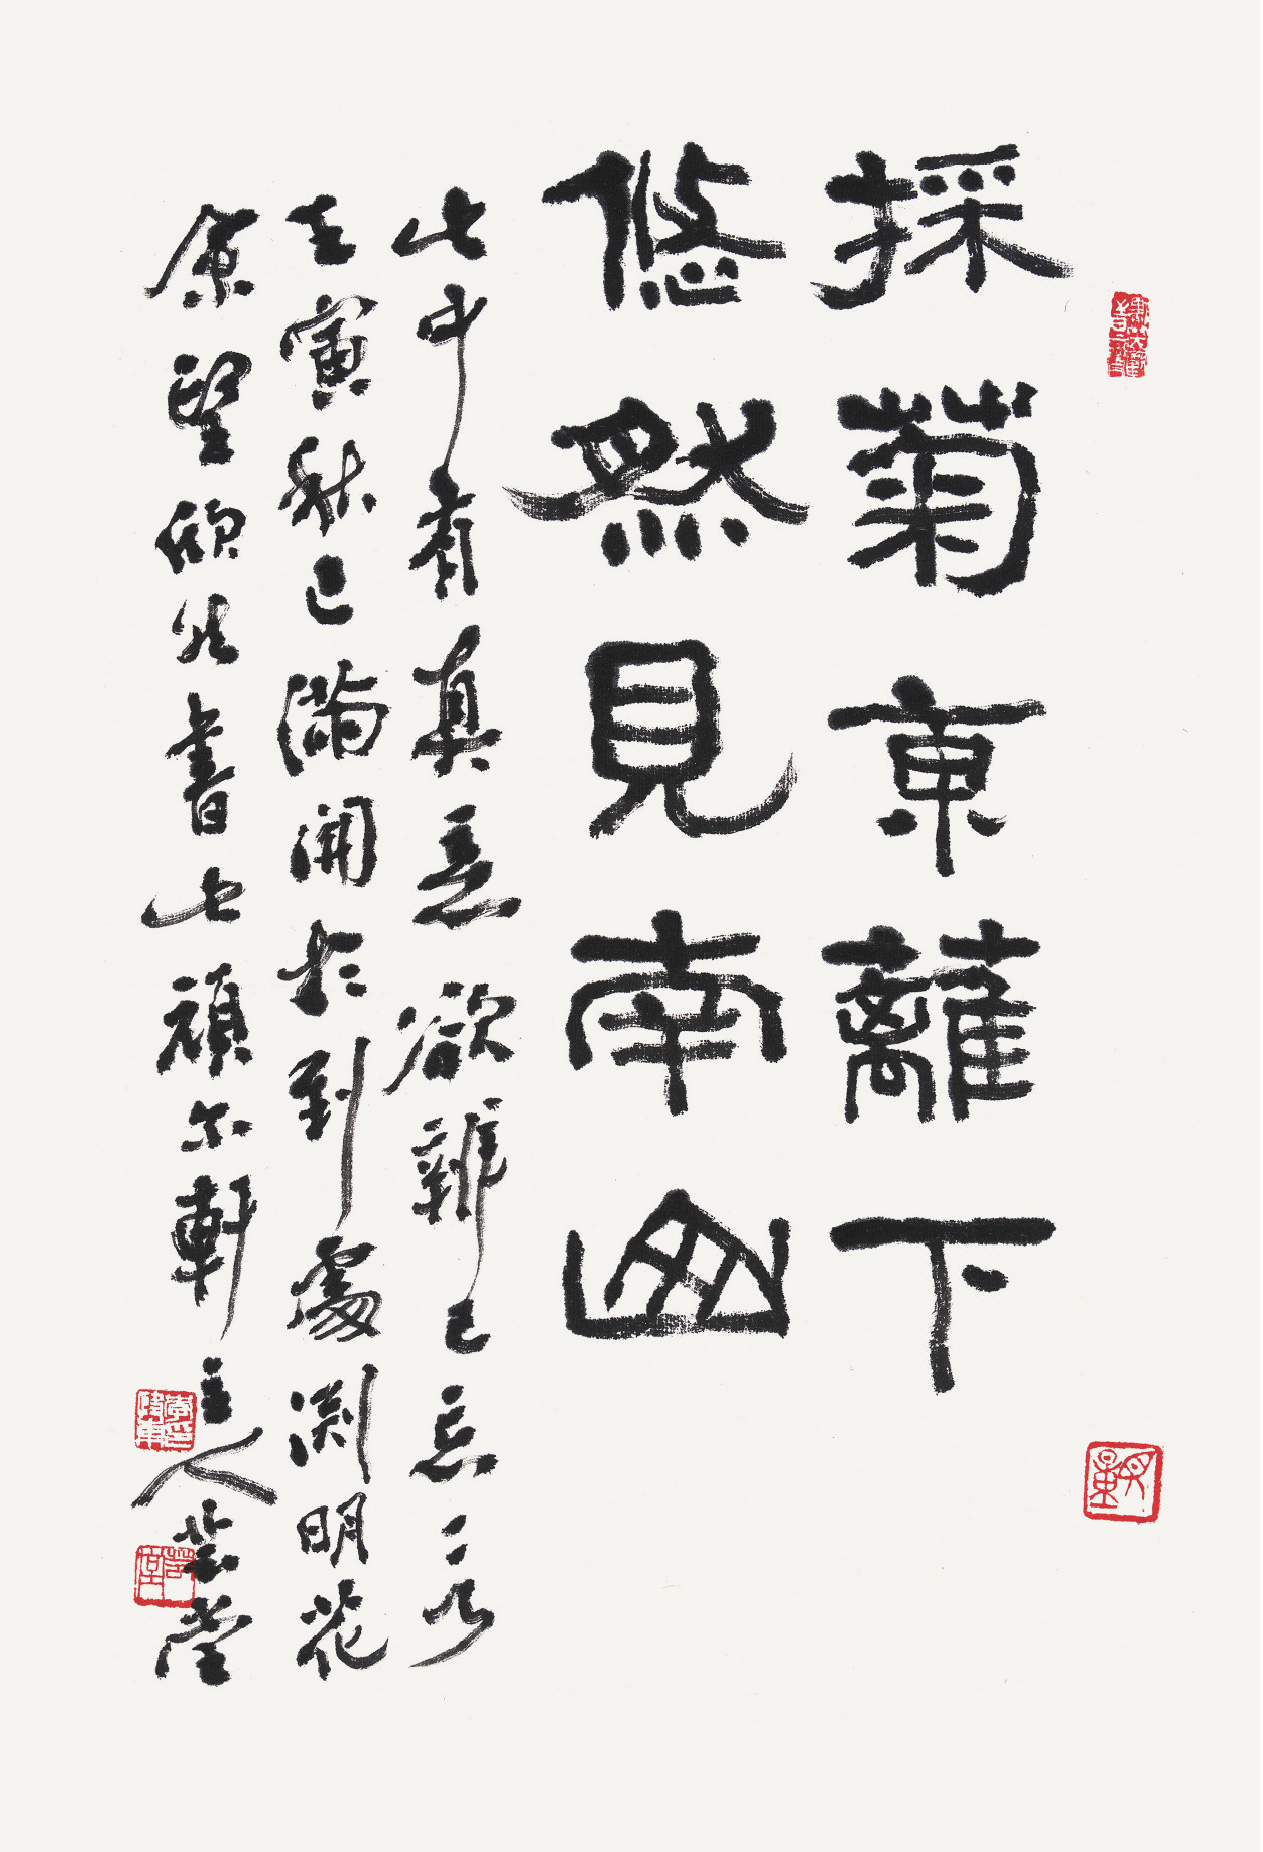 採菊東籬下
悠然見南山
此中有真意欲辨已忘言
壬寅秋已滿開於到處淵明花
然書 軒主人芸堂